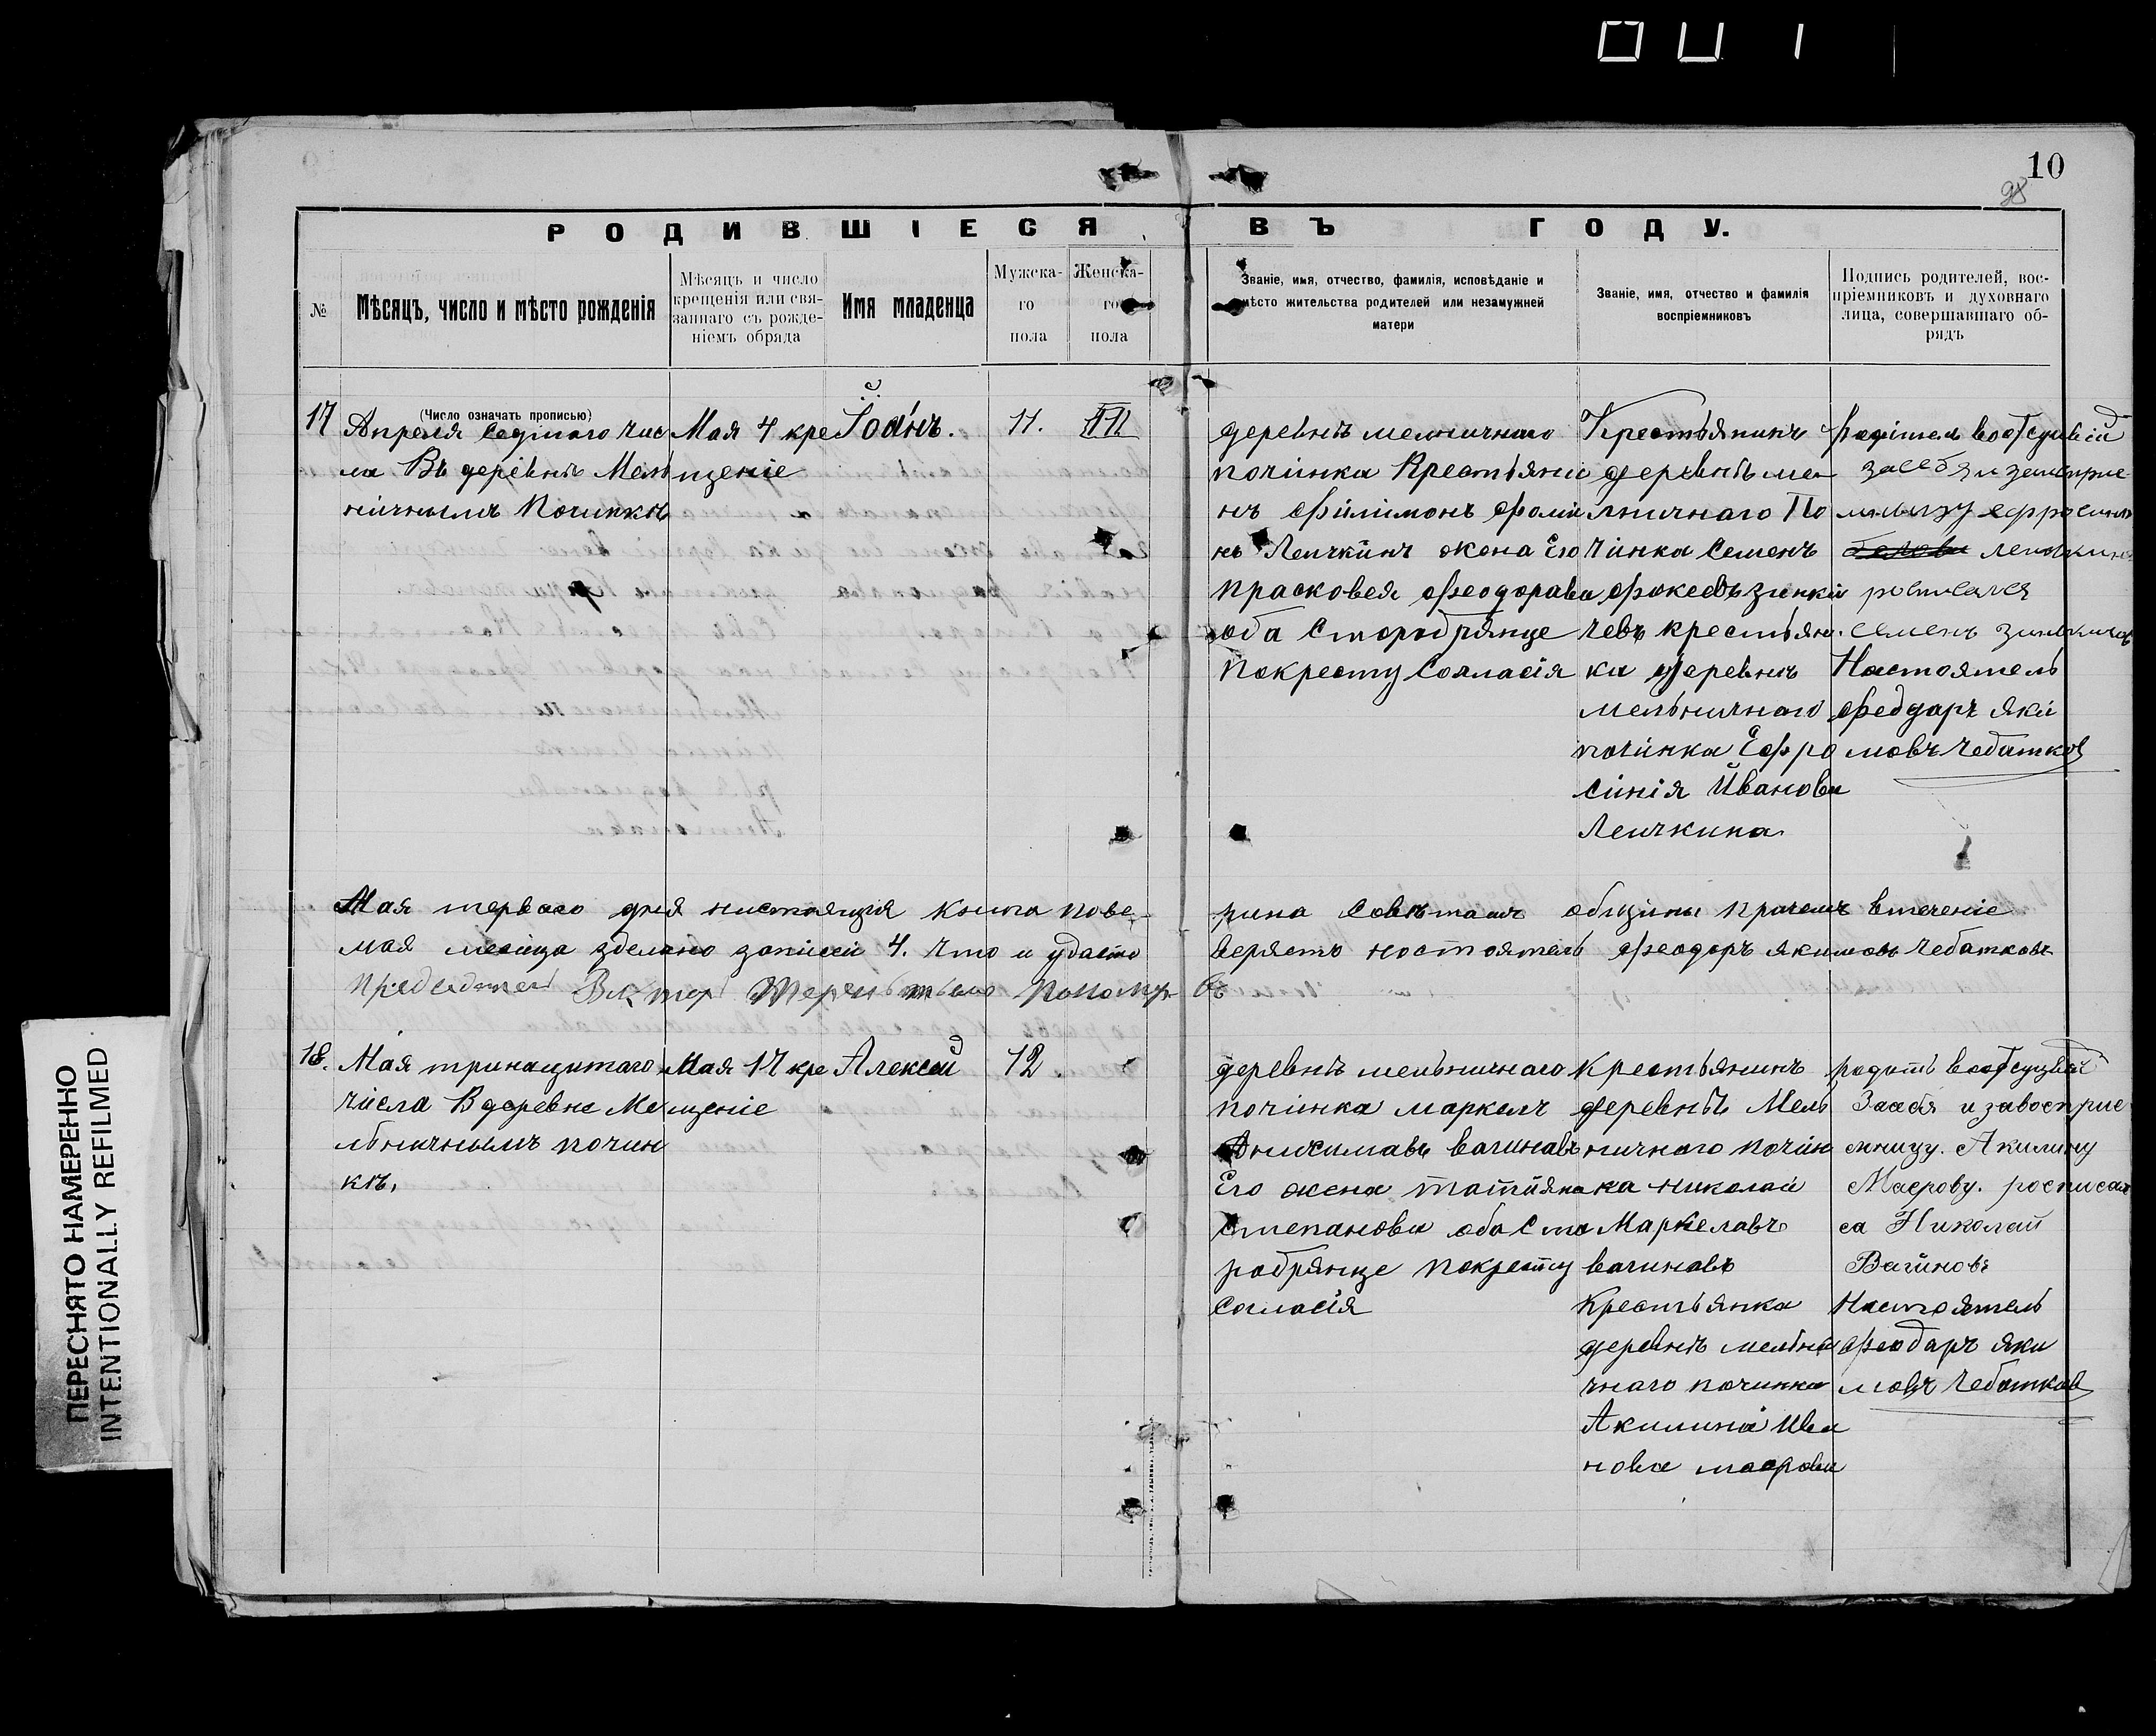 10
РОДИВШІЕСЯ ВЪ ГОДУ.
№
Мѣсяцъ, число и мѣсто рожденія
Мѣсяцъ и число
крещенія или свя-
заннаго съ рожде-
ніемъ обряда
Имя младенца
Мужска-
го
пола
Женска-
го
пола
Званіе, имя, отчество, фамилія, исповѣданіе и
мѣсто жительства родителей или незамужней
матери
Званіе, имя, отчество и фамилія
воспріемниковъ
Подпись родителей, вос-
пріемниковъ и духовнаго
лица, совершавшаго об-
рядъ
17
(Число означать прописью)
Апреля Седмого Чис
ла Въ деревнѣ Мель
ничнымъ Починкѣ
Мая 4 кре
щеніе
Іоа́нъ.
11.
деревнѣ мелничнаго
починка Крестьяни
нъ Филимонъ Фоми
нъ Леичкинъ жена Его
Прасковея Феодорава
оба Старобрянце
Покресту Согласія
Крестьянинъ
деревнѣ ме
лничнаго По
чинка Семенъ
Фокеевъ зинки
чевъ крестьян
ка деревнѣ
мельничнаго
починка Ефро
синія Иванова
Леичкина
родитель воотсудвій
засебя и
ефросинью
леичкину
росписался
семенъ
Настоятель
Феодаръ яки
мовъ Чебатков
Мая перваго дня настоящія книга пове-
рина Советамъ общины причемъ втеченіе
мая месяца зделано записей 4. Что и удасто
веряетъ ностоятель Феодоръ якимовъ Чебатковъ
18.
Мая тринацитаго
числа В деревне Ме
льничнымъ почин
кѣ,
Мая 17 кре
щеніе
Алексей
12.
деревнѣ мельничнаго
починка маркелъ
Анисимавъ вагинавъ
Его жена татияна
степанова оба Ста
робрянце покресту
согласія
крестьянинъ
деревнѣ Мель
ничнаго почин
ка николай
Маркелавъ
вагиновъ
Крестьянка
деревнѣ мельни
чнаго починка
Акилина Ива
нова маорова
родить воотсудвій
Засебя и завосприе
мницу. Акилину
Маерову. росписал
са Николай
Вагиновъ
Настоятель
Феодаръ яки
мовъ Чебатков
ПЕРЕСНЯТО НАМЕРЕННО
INTENTIONALLY REFILMED